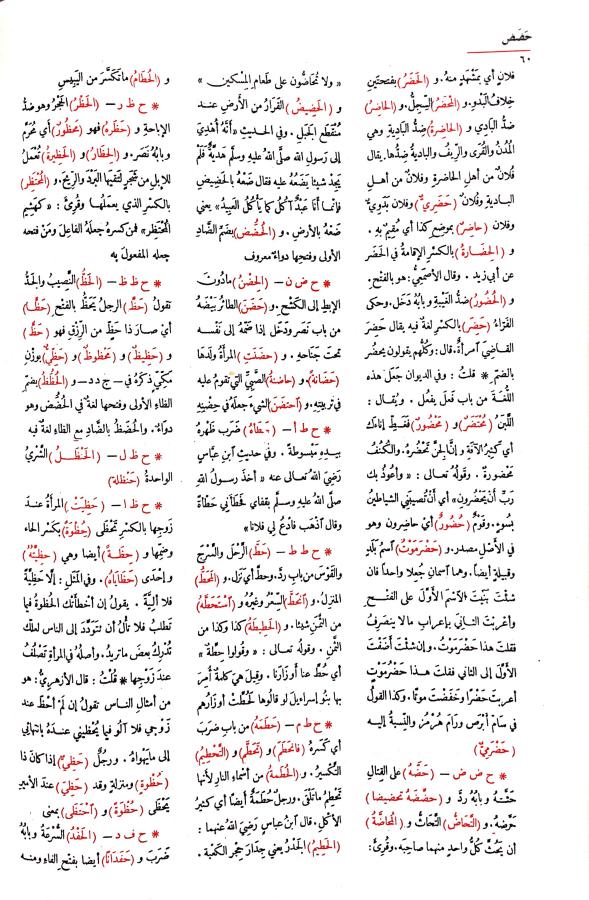 حَضَض
٦٠
فلان أي بمَشْهَدٍ منه. و (الحَضَرُ) بفتحتين
خِلافُ البَدْوِ. و (المَحْضَرُ) السِّجِلُّ. و (الحاضِرُ)
ضدُّ البَادِي و (الحاضِرةُ) ضِدُّ البادِيةِ وهي
المُدُنُ والقُرَى والرِّيفُ والباديةُ ضِدُّها. يقال
فُلانٌ من أَهلِ الحاضِرةِ وفُلانٌ من أَهلِ
البادِيةِ وفُلانٌ (حَضَرِيٌّ) وفلان بَدَوِيٌّ
وفلان (حاضِرٌ) بموضِع كذا أي مُقِيمٌ به .
و (الحِضَارةُ) بالكسْرِ الإقامةُ في الحَضَر
عن أبي زيد . وقال الأصمَعِيُّ : هو بالفتْحِ .
و (الحُضُورُ) ضدُّ الغَيبةِ وبابُهُ دَخَل. وحكى
الفَرَّاءُ (حَضِرَ) بالكَسْرِ لغةٌ فيه يقال حَضِرَ
القاضِيَ امرأةٌ. قال : وكُلُّهم يقولون يَحضُر
بالضمِّ * قلتُ : وفي الديوان جَعَل هذه
اللُّغَةَ من باب فَعِلَ يَفعُل . ويُقال :
اللَّبَنُ (مُحْتَضَرٌ) و (مَحْضُورٌ) فغَطِّ إناءَك
أي كَثيرُ الآفةِ وإنَّ الجِنَّ تَحْضُرُه. والكُنُفُ
مَحْضورةٌ . وقَولُهُ تعالى : « وأعُوذُ بك
رَبِّ أنْ يَحْضُرُونِ » أي أنْ تُصِيبَني الشياطينُ
بسُوءٍ. وقَومٌ (حُضُورٌ) أيْ حاضِرون وهو
في الأَصْل مصدر. و (حَضْرَمَوْتُ) اسمُ بَلَدٍ
وقَبيلةٍ أيضاً. وهما اسمانِ جُعِلا واحداً فإن
شئْتَ بَنَيْتَ الاِسمَ الأوّلَ على الفتحِ
وأعْرَبْتَ الثانيَ بإعرابِ ما لا يَنصرِفُ
فقلتَ هذا حَضْرَمَوْتُ. وإن شئتَ أَضَفْتَ
الأوّلَ إلى الثاني فقلتَ هذا حَضْرُمَوْتٍ
أعربتَ حَضْرًا وخَفَضْتَ موتًا . وكذا القولُ
في سَامِّ أَبْرَصَ ورَامَ هُرْمُزَ والنِّسبةُ إليه
(حَضْرَمِيٌّ)
* ح ض ض — (حَضَّهُ) على القتالِ
حَثَّهُ وبابُهُ رَدَّ و (حَضَّضَهُ تحضيضا)
حَرَّضَهُ. و (التَّحَاضُّ) التَّحَاثُّ و (المُحَاضَّةُ)
أن يَحُثَّ كلُّ واحدٍ منهما صاحبَه. وقُرِئ:
« ولا تُحَاضُّون على طَعام المِسْكين »
و (الحَضِيضُ) القَرَارُ من الأرضِ عند
مُنْقَطَعِ الجَبَل . وفي الحديث « أنَّهُ أُهْدِيَ
إلى رَسولِ الله صلَّى اللهُ عليه وسلَّم هَديَّةٌ فلَمْ
يجِدْ شيئا يضَعُهُ عليه فقال ضَعْهُ بالحَضِيضِ
فإنما أنا عَبْدٌ آكُلُ كما يأكُلُ العَبِيدُ » يعني
ضَعْهُ بالأرض. و (الحُضُضُ) بضمِّ الضَّادِ
الأولى وفتحِها دواءٌ معروف
* ح ض ن — (الحِضْنُ) مادُونَ
الإبِطِ إلى الكَشْحِ. و (حَضَنَ) الطائرُ بَيْضَهُ
من باب نَصَر ودَخَل إذا ضَمَّهُ إلى نَفْسه
تحتَ جَناحِه . و (حَضَنَتِ) المرأةُ ولدَها
(حَضَانةً) . و (حاضنةُ) الصَّبيِّ التي تقومُ عليه
في تربيتِه. و (احتَضَنَ) الشيءَ جعلَهُ في حِضْنِه
* ح ط أ — (حَطَأهُ) ضَرَب ظَهْرَه
بيدِهِ مَبْسُوطةً . وفي حديثِ ابنِ عبَّاسٍ
رَضيَ اللهُ تعالى عنه « أخَذَ رسولُ اللهِ
صلَّى اللهُ عليه وسلَّم بقفايَ فحَطَأَنِي حَطْأَةً
وقال اذْهَب فادْعُ لي فلانا »
* ح ط ط — (حَطَّ) الرَّحْلَ والسَّرْجَ
والقَوْسَ من باب رَدَّ. وحطَّ أي نَزَل. و (المَحَطُّ)
المنزِلُ. و (انحطَّ) السِّعْرُ وغيرُه و (اسْتَحَطَّهُ)
من الثَّمنِ شيئا . و (الحَطِيطَةُ) كذا وكذا من
الثَّمَنِ . وقولُهُ تعالى : « وقُولوا حِطَّةٌ »
أي حُطَّ عنا أوْزارَنا . وقيلَ هيَ كلمةٌ أُمِرَ
بها بنُو إسرائيلَ لو قالُوها لحُطَّتْ أوزارُهم
* ح ط م — (حَطَمَهُ) من باب ضرَبَ
أي كَسَرَهُ (فانحَطَمَ) و (تَحَطَّمَ) و (التَّحْطِيمُ)
التَّكْسيرُ . و (الحُطَمةُ) من أسْماءِ النارِ لأنها
تَحْطِمُ ما تَلْقَى. ورجلٌ حُطَمَةٌ أيضاً أي كثيرُ
الأكْلِ. قال ابنُ عباسٍ رَضِيَ اللهُ عنهما :
(الحَطِيمُ) الجَدْرُ يعني جِدَارَ حِجْرِ الكَعْبة .
و (الحُطَامُ) ما تَكَسَّرَ من اليَبيسِ
* ح ظ ر — (الحَظْرُ) الحَجْرُ وهو ضدُّ
الإباحةِ و (حَظَرَهُ) فهو (محظورٌ) أي مُحَرَّم
وبابُهُ نَصَر. و (الحِظَارُ) و (الحَظيرةُ) تُعْمَلُ
للإبِلِ من شَجَرٍ لتَقِيَها البَرْدَ والرِّيحَ. و (المُحتَظِر)
بالكسْرِ الذي يعملُها وقُرِئ : « كهَشِيمِ
المُحْتَظِرِ » فمن كسرَهُ جعلَهُ الفاعِلَ ومَنْ فتحه
جعله المفعولَ به
* ح ظ ظ — (الحَظُّ) النَّصِيبُ والجَدُّ
تقولُ (حَظَّ) الرجلُ يَحَظُّ بالفتْحِ (حَظًّا)
أيْ صارَ ذا حَظٍّ من الرِّزْقِ فهو (حَظٌّ)
و (حَظِيظٌ) و (محظوظٌ) و (حَظِّيٌّ) بوزْنِ
مَكِّيٍّ ذكرَهُ في — ج د د — و (الحُظُظُ) بضمِّ
الظاءِ الأولى وفتحِها لغةٌ في الحُضُضِ وهو
دواءٌ. والحُضَظُ بالضَّادِ مع الظاءِ لغة فيه
* ح ظ ل — (الحَنْظَلُ) الشَّرْيُ
الواحدةُ (حَنظلة)
* ح ظ ا — (حَظِيَتْ) المرأةُ عندَ
زَوجِها بالكسْرِ تَحْظَى (حِظْوةً) بكَسْرِ الحاءِ
وضمِّها و (حِظَةً) أيضا وهي (حَظِيَّتُهُ)
و إحْدى (حَظَايَاه) . وفي المَثَل : إلَّا حَظِيَّةً
فلا أَلِيَّةً . يقول إن أخطأتْك الحُظوةُ فيما
تطلُب فلا تألُ أن تَتودَّدَ إلى الناسِ لعلَّك
تُدْرِكُ بعضَ ماتريدُ. وأصلُهُ في المرأةِ تَصْلَفُ
عند زَوجِها * قُلْتُ : قال الأزهريُّ : هو
من أمثالِ النساءِ تقولُ إن لَمْ أَحْظَ عند
زَوْجي فلا آلُو فيما يُحْظِيني عندَهُ بانتهائي
إلى ما يَهْواهُ . ورجُلٌ (حَظِيٌّ) إذا كان ذا
(حُظْوةٍ) ومنزِلةٍ وقد (حَظِيَ) عندَ الأمير
يَحْظَى (حُظْوَةً) و (احْتَظَى) بمعنى
* ح ف د — (الحَفْدُ) السُّرْعةُ وبابُهُ
ضَرَبَ و (حَفَدَانًا) أيضا بفتْحِ الفاءِ ومنه